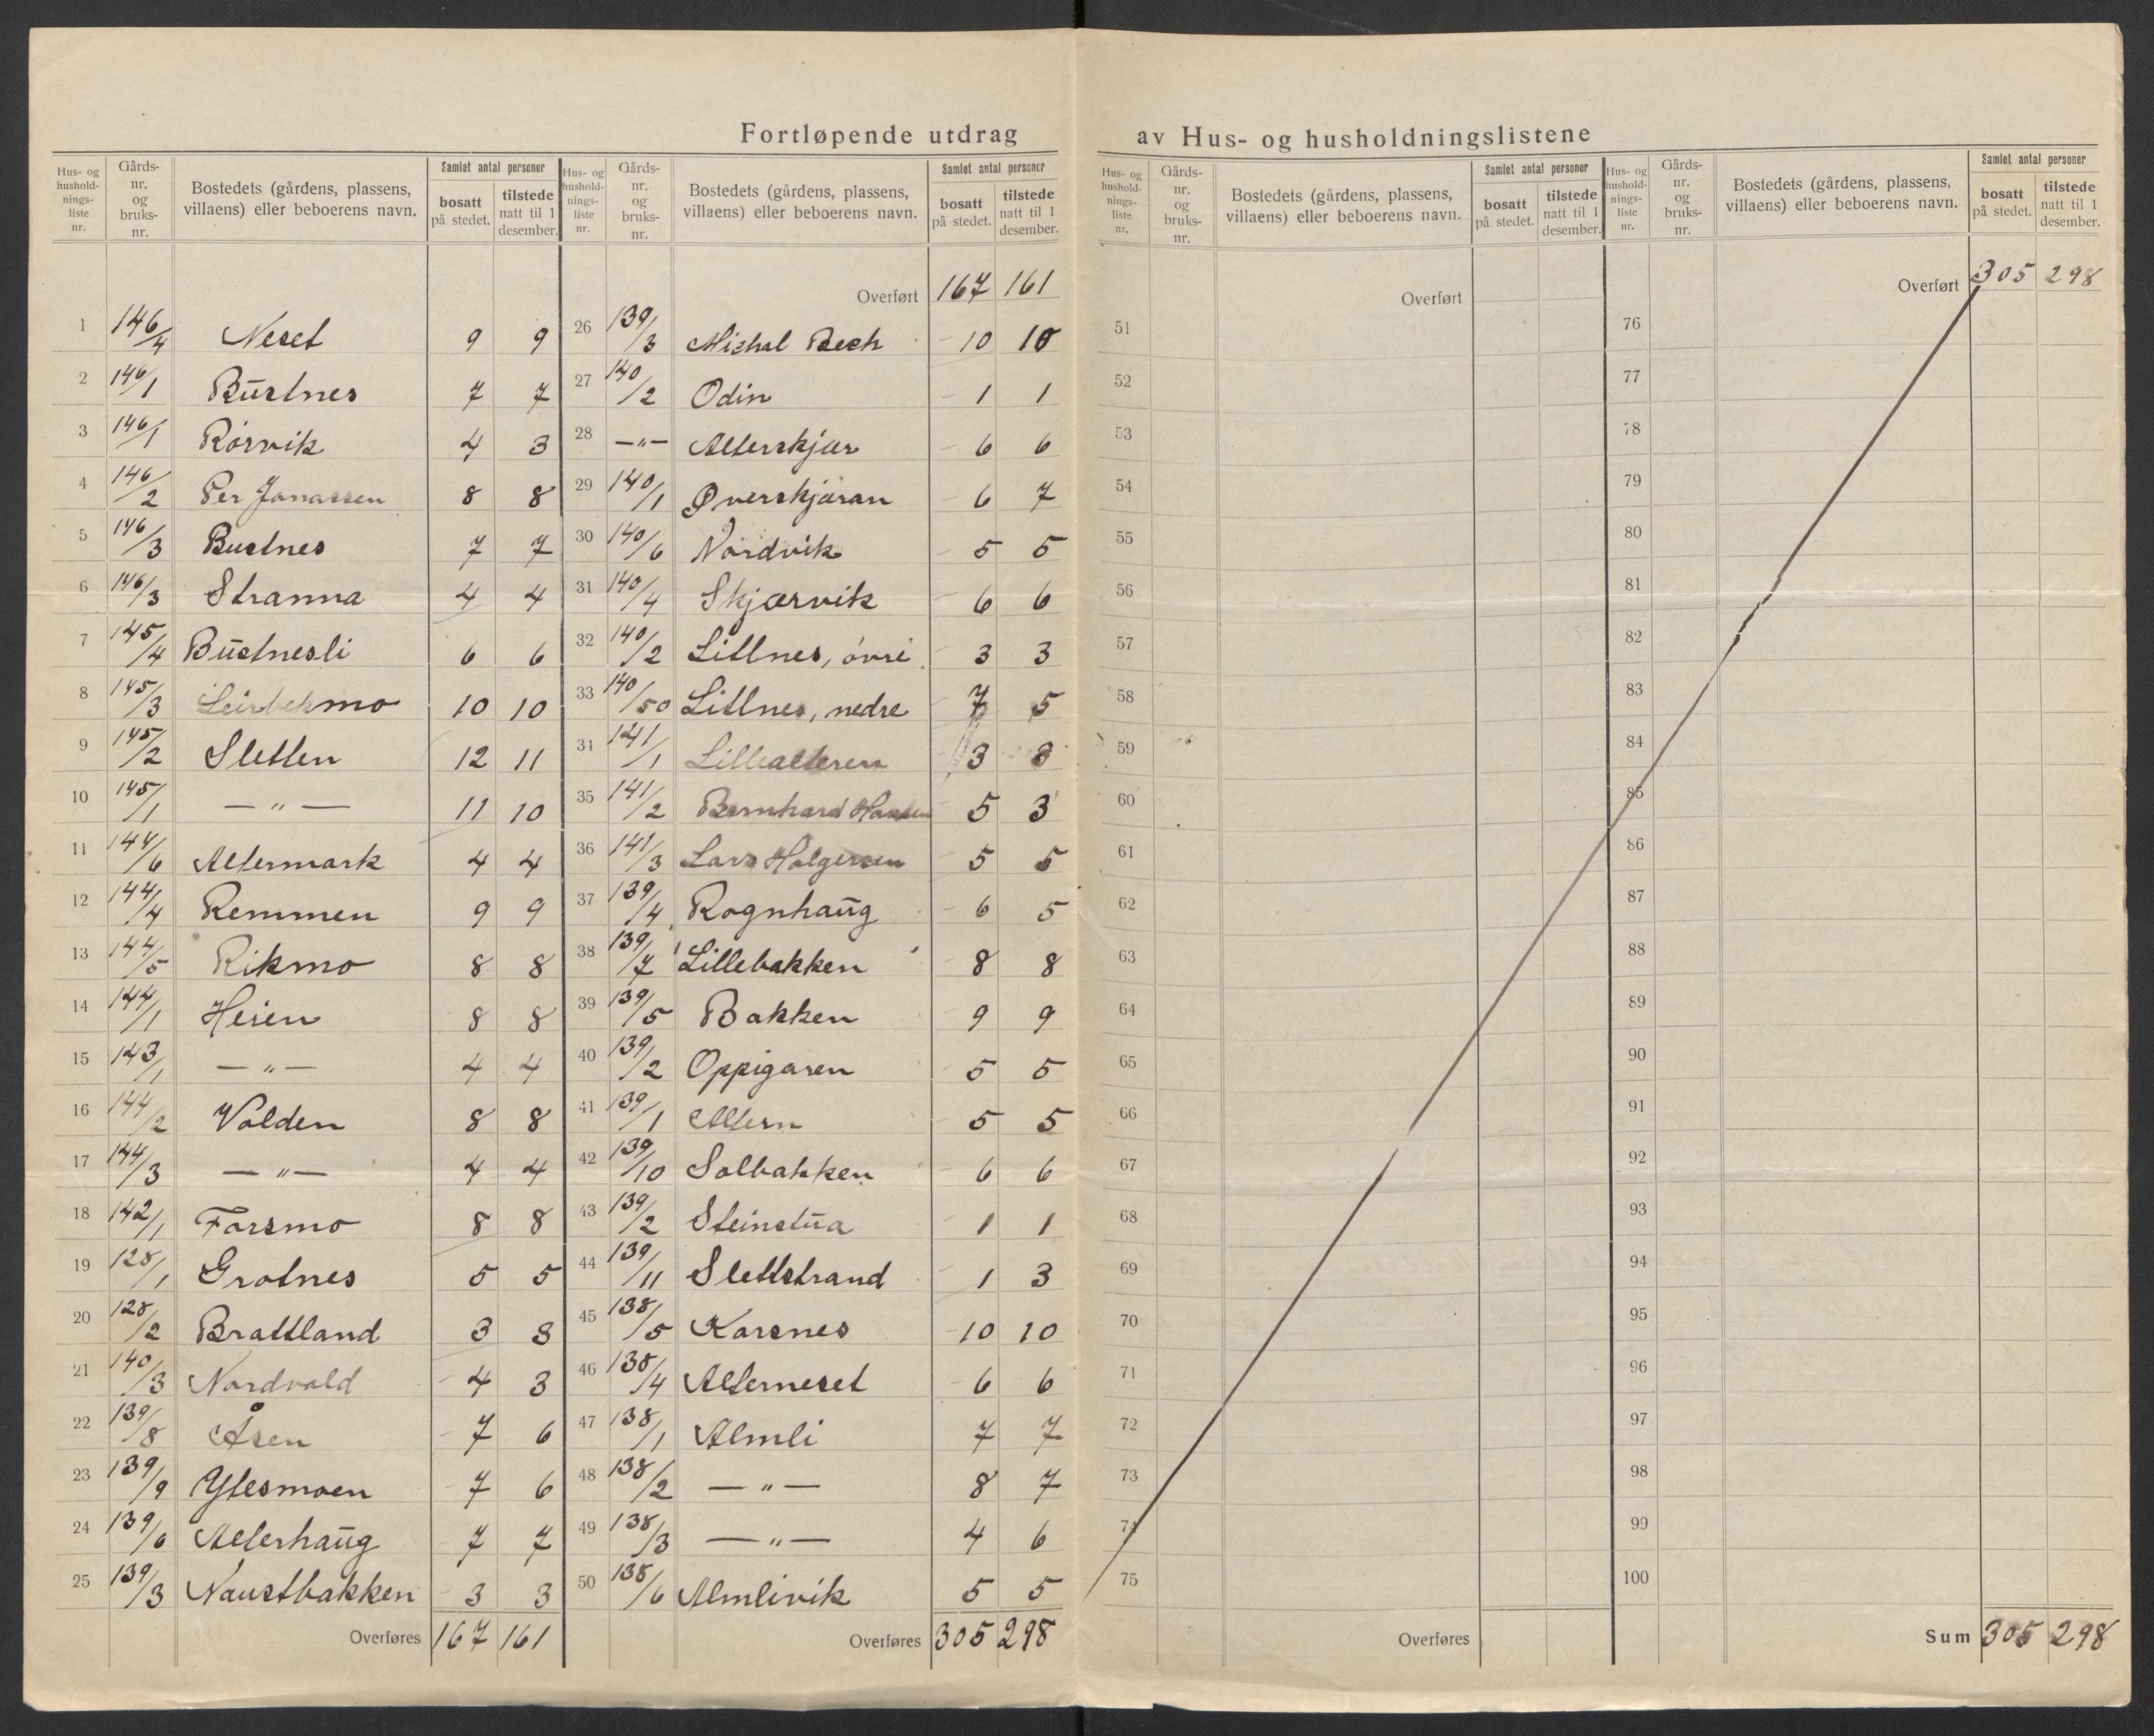 Fortløpende utdrag av Hus- og husholdningslistene
Hus- og hushold-nings-liste nr. Gårds-nr. og bruks-nr. Bostedets (gårdens, plassens, villaens) eller beboerens navn. Samlet antal personer bosatt på stedet. tilstede natt til 1 desember.
1 146/4 Neset 9 9
2 146/1 Bustnes 7 7
3 146/1 Rørvik 4 3
4 146/2 Per Jonassen 8 8
5 146/3 Bustnes 7 7
6 146/3 Stranna 4 4
7 145/4 Bustnesli 6 6
8 145/3 Leirbekmo 10 10
9 145/2 Sletten 12 11
10 145/1 — " — 11 10
11 144/6 Altermark 4 4
12 144/4 Remmen 9 9
13 144/5 Rikmo 8 8
14 144/1 Heien 8 8
15 143/1 — " — 4 4
16 144/2 Volden 8 8
17 144/3 — " — 4 4
18 142/1 Forsmo 8 8
19 128/1 Grotnes 5 5
20 128/2 Brattland 3 3
21 140/3 Nordvold 4 3
22 139/8 Åsen 7 6
23 139/9 Ytesmoen 7 6
24 139/6 Alterhaug 7 7
25 139/3 Naustbakken 3 3
Overføres 167 161
Hus- og hushold-nings-liste nr. Gårds-nr. og bruks-nr. Bostedets (gårdens, plassens, villaens) eller beboerens navn. Samlet antal personer bosatt på stedet. tilstede natt til 1 desember.
Overført 167 161
26 139/3 Michal Bech 10 10
27 140/2 Odin 1 1
28 —"— Alterskjær 6 6
29 140/1 Øverskjæran 6 7
30 140/6 Nordvik 5 5
31 140/4 Skjærvik 6 6
32 140/2 Litlnes, øvre 3 3
33 140/50 Litlnes, nedre 7 5
31 141/1 Lillealteren 3 3
35 141/2 Bernhard Hansen 5 3
36 141/3 Lars Holgersen 5 5
37 139/4 Rognhaug 6 5
38 139/7 Lillebakken 8 8
39 139/5 Bakken 9 9
40 139/2 Oppigaren 5 5
41 139/1 Altern 5 5
42 139/10 Solbakken 6 6
43 139/2 Steinstua 1 1
44 139/11 Slettstrand 1 3
45 138/5 Korsnes 10 10
46 138/4 Alterneset 6 6
47 138/1 Almli 7 7
48 138/2 — " — 8 7
49 138/3 — " — 4 6
50 138/6 Almlivik 5 5
Overføres 305 298
Hus- og hushold-nings-liste nr. Gårds-nr. og bruks-nr. Bostedets (gårdens, plassens, villaens) eller beboerens navn. Samlet antal personer bosatt på stedet. tilstede natt til 1 desember.
Overført
51
52
53
54
55
56
57
58
59
60
61
62
63
64
65
66
67
68
69
70
71
72
73
74
75
Overføres
Hus- og hushold-nings-liste nr. Gårds-nr. og bruks-nr. Bostedets (gårdens, plassens, villaens) eller beboerens navn. Samlet antal personer bosatt på stedet. tilstede natt til 1 desember.
Overført 305 298
76
77
78
79
80
81
82
83
84
85
86
87
88
89
90
91
92
93
94
95
96
97
98
99
100
Sum 305 298